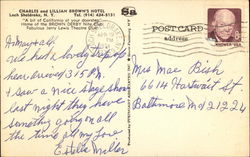 CHARLES and LILLIAN BROWN'S HOTEL
Loch Sheldrake, N. Y. Tel. (914) 434-5151
"A bit of California at your doorstep"
Home of the BROWN DERBY Nite Club
Fabulous Jerry Lewis Theatre Club
POST CARD
Address
Hi May & all
We had a lovely trip up
here arriving 3:15 PM.
& saw a nice stage show
last night they have
something going on all
the time at my fore
Estelle Miller
Mrs Mae Bish
6614 Hartwait St.
Baltimore Md 21224